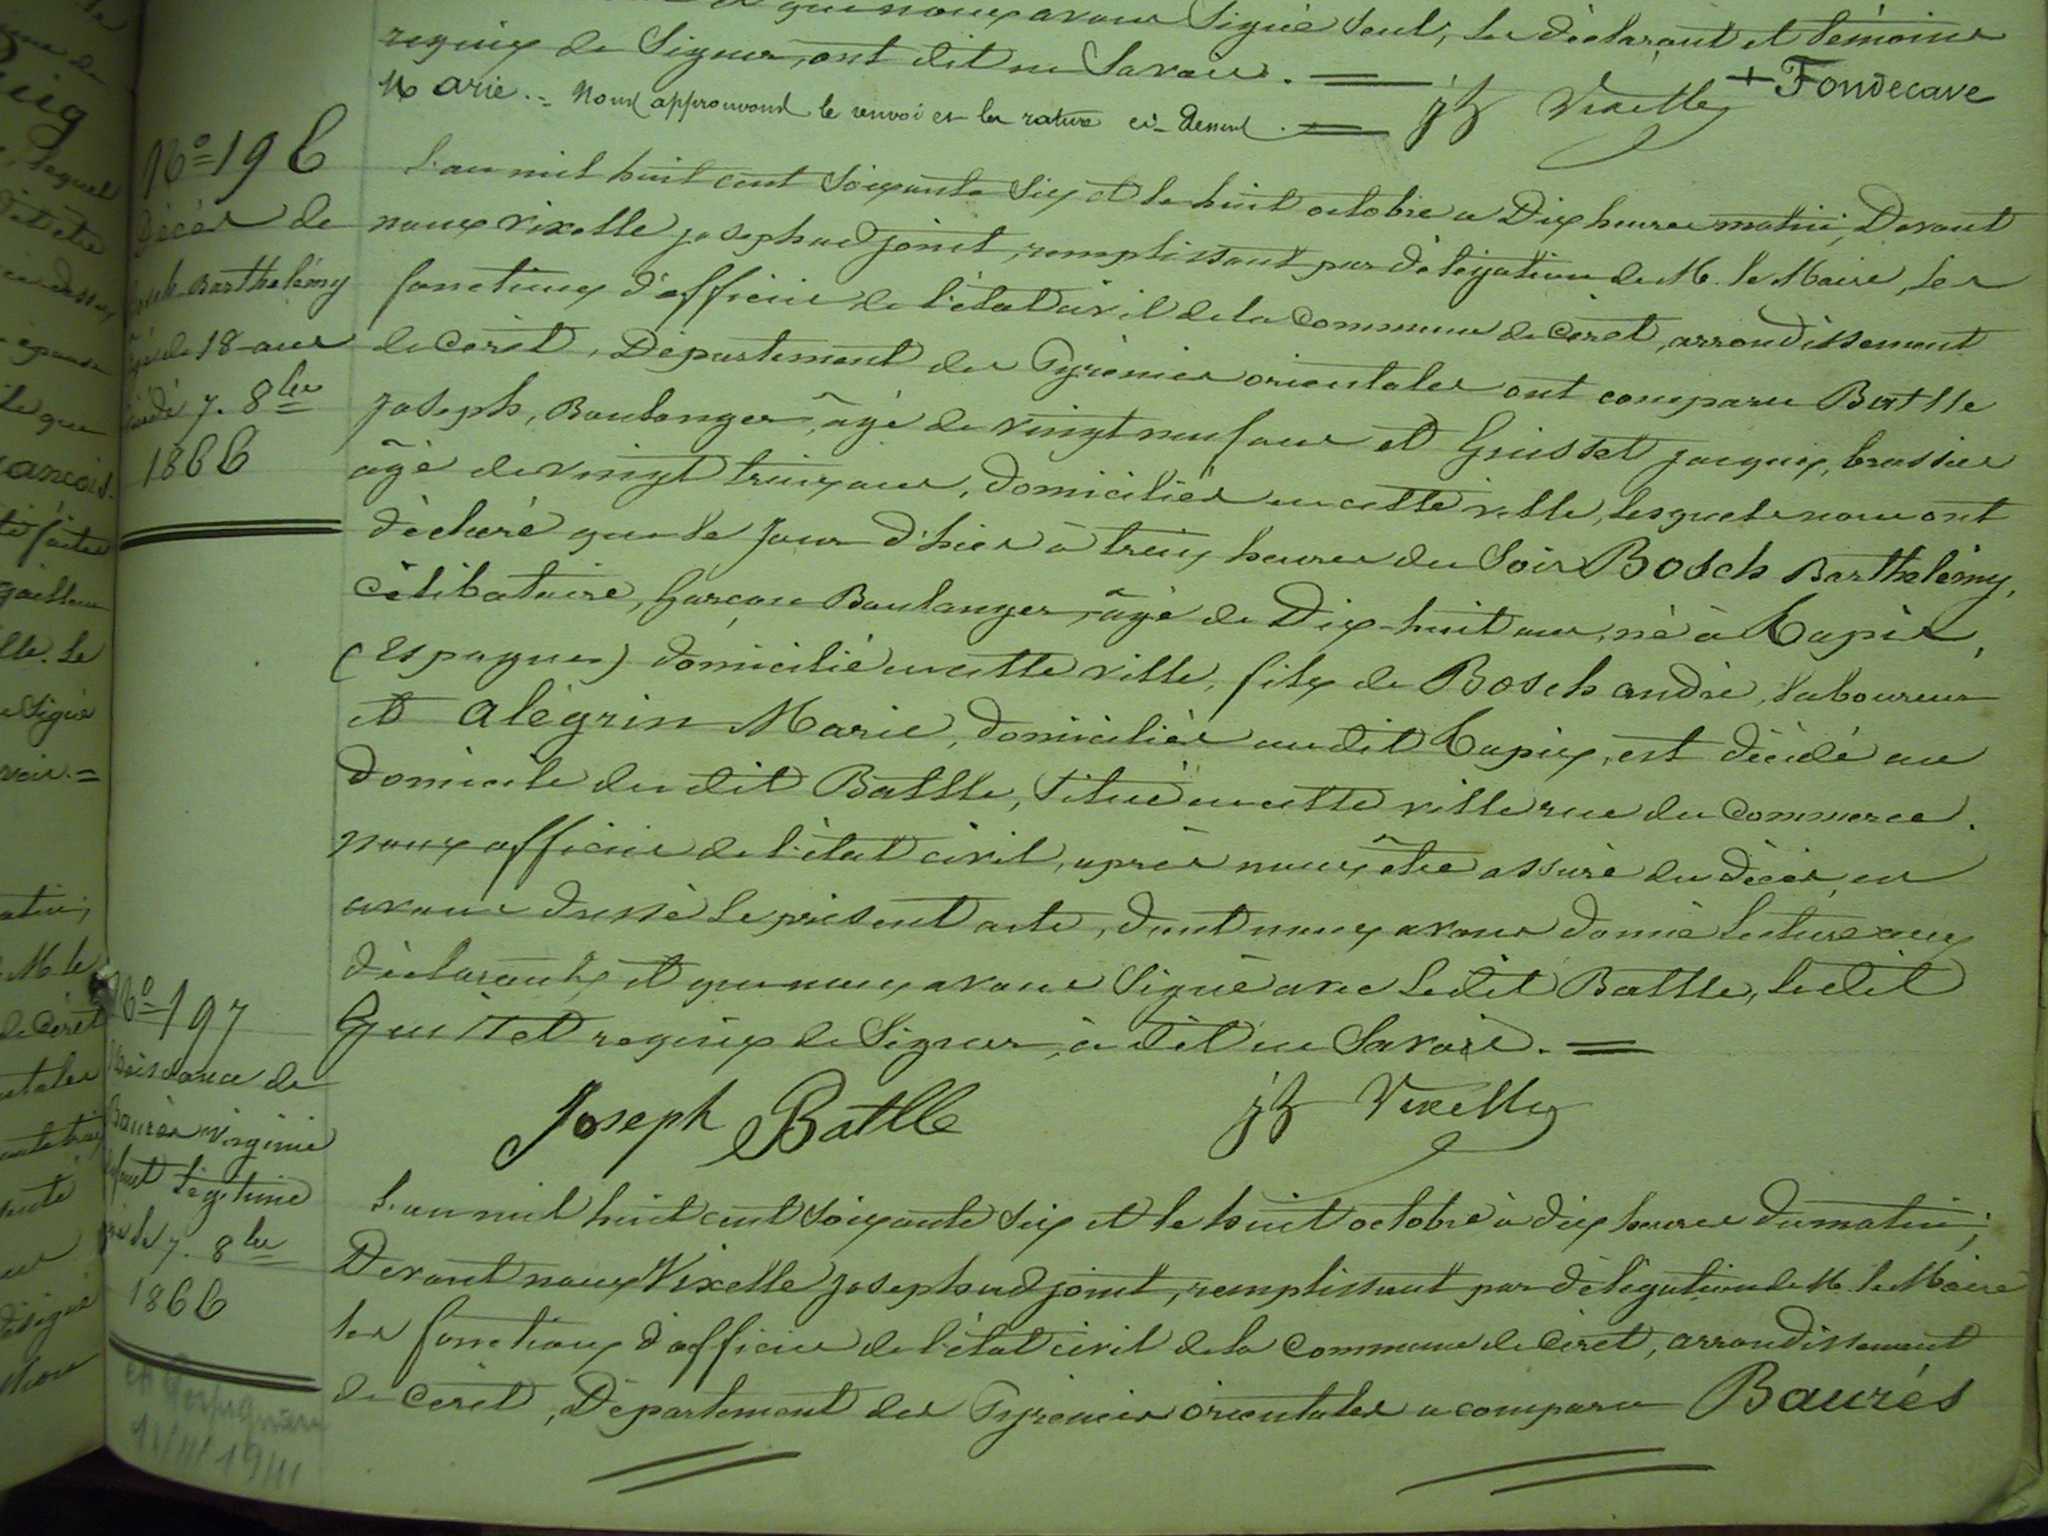 que nous avons Signé Seul, les déclarant et témoins
requis de Signer, ont dit ne Savoir.
+ Fondecave
Marie. = Nous approuvons le renvoi et la rature ci-dessus.
jh Vixelle
N° 196
Décès de
Bosch Barthelémy
âgé de 18 ans
décédé 7. 8bre
1866
L'an mil huit cent Soixante Six et le huit octobre a Dix heures matin, Devant
nous Vixelle joseph adjoint, remplissant par délégation de M. le Maire, les
fonctions d'officier de l'état civil de la Commune de Céret, arrondissement
de Céret, Département des Pyrénées orientales ont comparu Batlle
Joseph, Boulanger, âgé de vingt neuf ans et Guisset jacques, brassier
âgé de vingt trois ans, domiciliés en cette ville, lesquels nous ont
déclaré que le jour d'hier à trois heures du Soir Bosch Barthelémy,
Célibataire, Garçon Boulanger, âgé de Dix-huit ans, né à Tapis,
(Espagne) domicilié en cette ville, fils de Bosch andré, laboureur
et Alégrin Marie, domiciliés au dit Tapis, est décédé au
Domicile du dit Batlle, Situé en cette ville rue du Commerce.
nous officier de l'état civil, après nous être assuré du décès, en
avons dressé le présent acte, dont nous avons donné lecture aux
déclarants, et que nous avons Signé avec le dit Batlle, le dit
Guisset requis de Signer, a dit ne Savoir.
Joseph Batlle jh Vixelle
N° 197
Naissance de
Baurés Virginie
enfant légitime
née le 7. 8bre
1866
L'an mil huit cent Soixante Six et le huit octobre à dix heures du matin;
Devant nous Vixelle joseph adjoint, remplissant par délégation de M. le Maire
les fonctions d'officier de l'état civil de la Commune de Céret, arrondissement
de Céret, Département des Pyrénées orientales a comparu Baurés